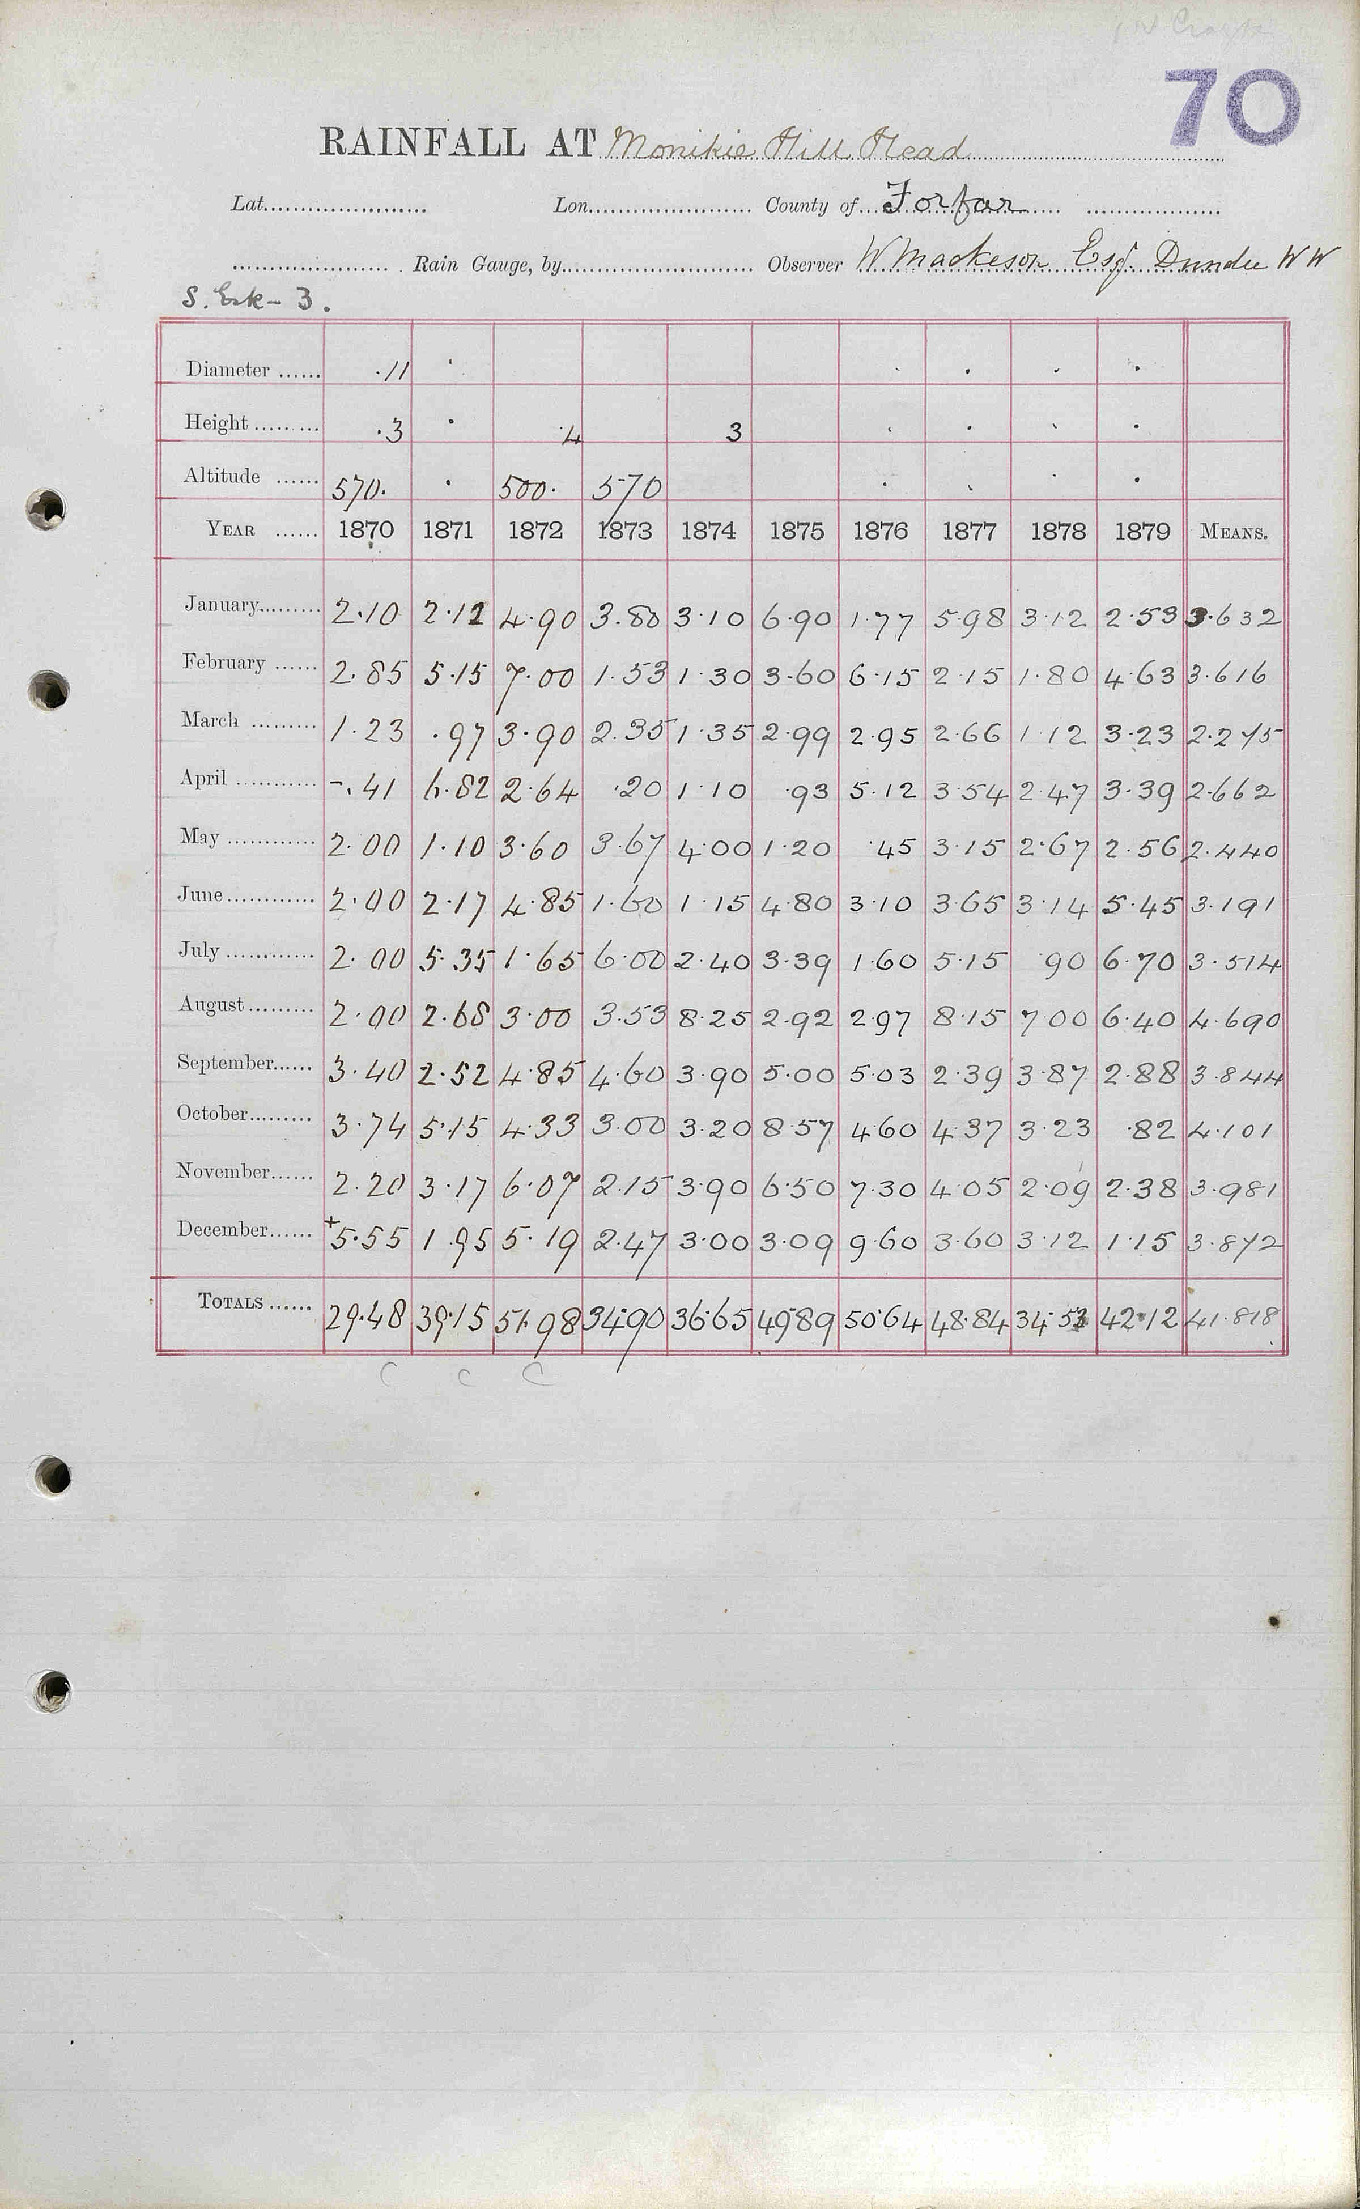 70
RAINFALL AT Monikie Hill Head
Lat. Lon. County of Forfar
Rain Gauge, by Observer W Mackeson Esq. Dundee W W
S. Esk - 3.
Diameter ...... .11
Height ......... .3 .4 3
Altitude ...... 570. 500. 570
YEAR ...... 1870 1871 1872 1873 1874 1875 1876 1877 1878 1879 MEANS.
January......... 2.10 2.12 4.90 3.80 3.10 6.90 1.77 5.98 3.12 2.53 3.632
February ...... 2.85 5.15 7.00 1.53 1.30 3.60 6.15 2.15 1.80 4.63 3.616
March ......... 1.23 .97 3.90 2.35 1.35 2.99 2.95 2.66 1.12 3.23 2.275
April ............ -.41 6.82 2.64 .20 1.10 .93 5.12 3.54 2.47 3.39 2.662
May ............ 2.00 1.10 3.60 3.67 4.00 1.20 .45 3.15 2.67 2.56 2.440
June............ 2.00 2.17 4.85 1.60 1.15 4.80 3.10 3.65 3.14 5.45 3.191
July ............ 2.00 5.35 1.65 6.00 2.40 3.39 1.60 5.15 .90 6.70 3.514
August......... 2.00 2.68 3.00 3.53 8.25 2.92 2.97 8.15 7.00 6.40 4.690
September...... 3.40 2.52 4.85 4.60 3.90 5.00 5.03 2.39 3.87 2.88 3.844
October......... 3.74 5.15 4.33 3.00 3.20 8.57 4.60 4.37 3.23 .82 4.101
November...... 2.20 3.17 6.07 2.15 3.90 6.50 7.30 4.05 2.09 2.38 3.981
December...... +5.55 1.95 5.19 2.47 3.00 3.09 9.60 3.60 3.12 1.15 3.872
TOTALS ...... 29.48 39.15 51.98 34.90 36.65 49.89 50.64 48.84 34.53 42.12 41.818
C C C